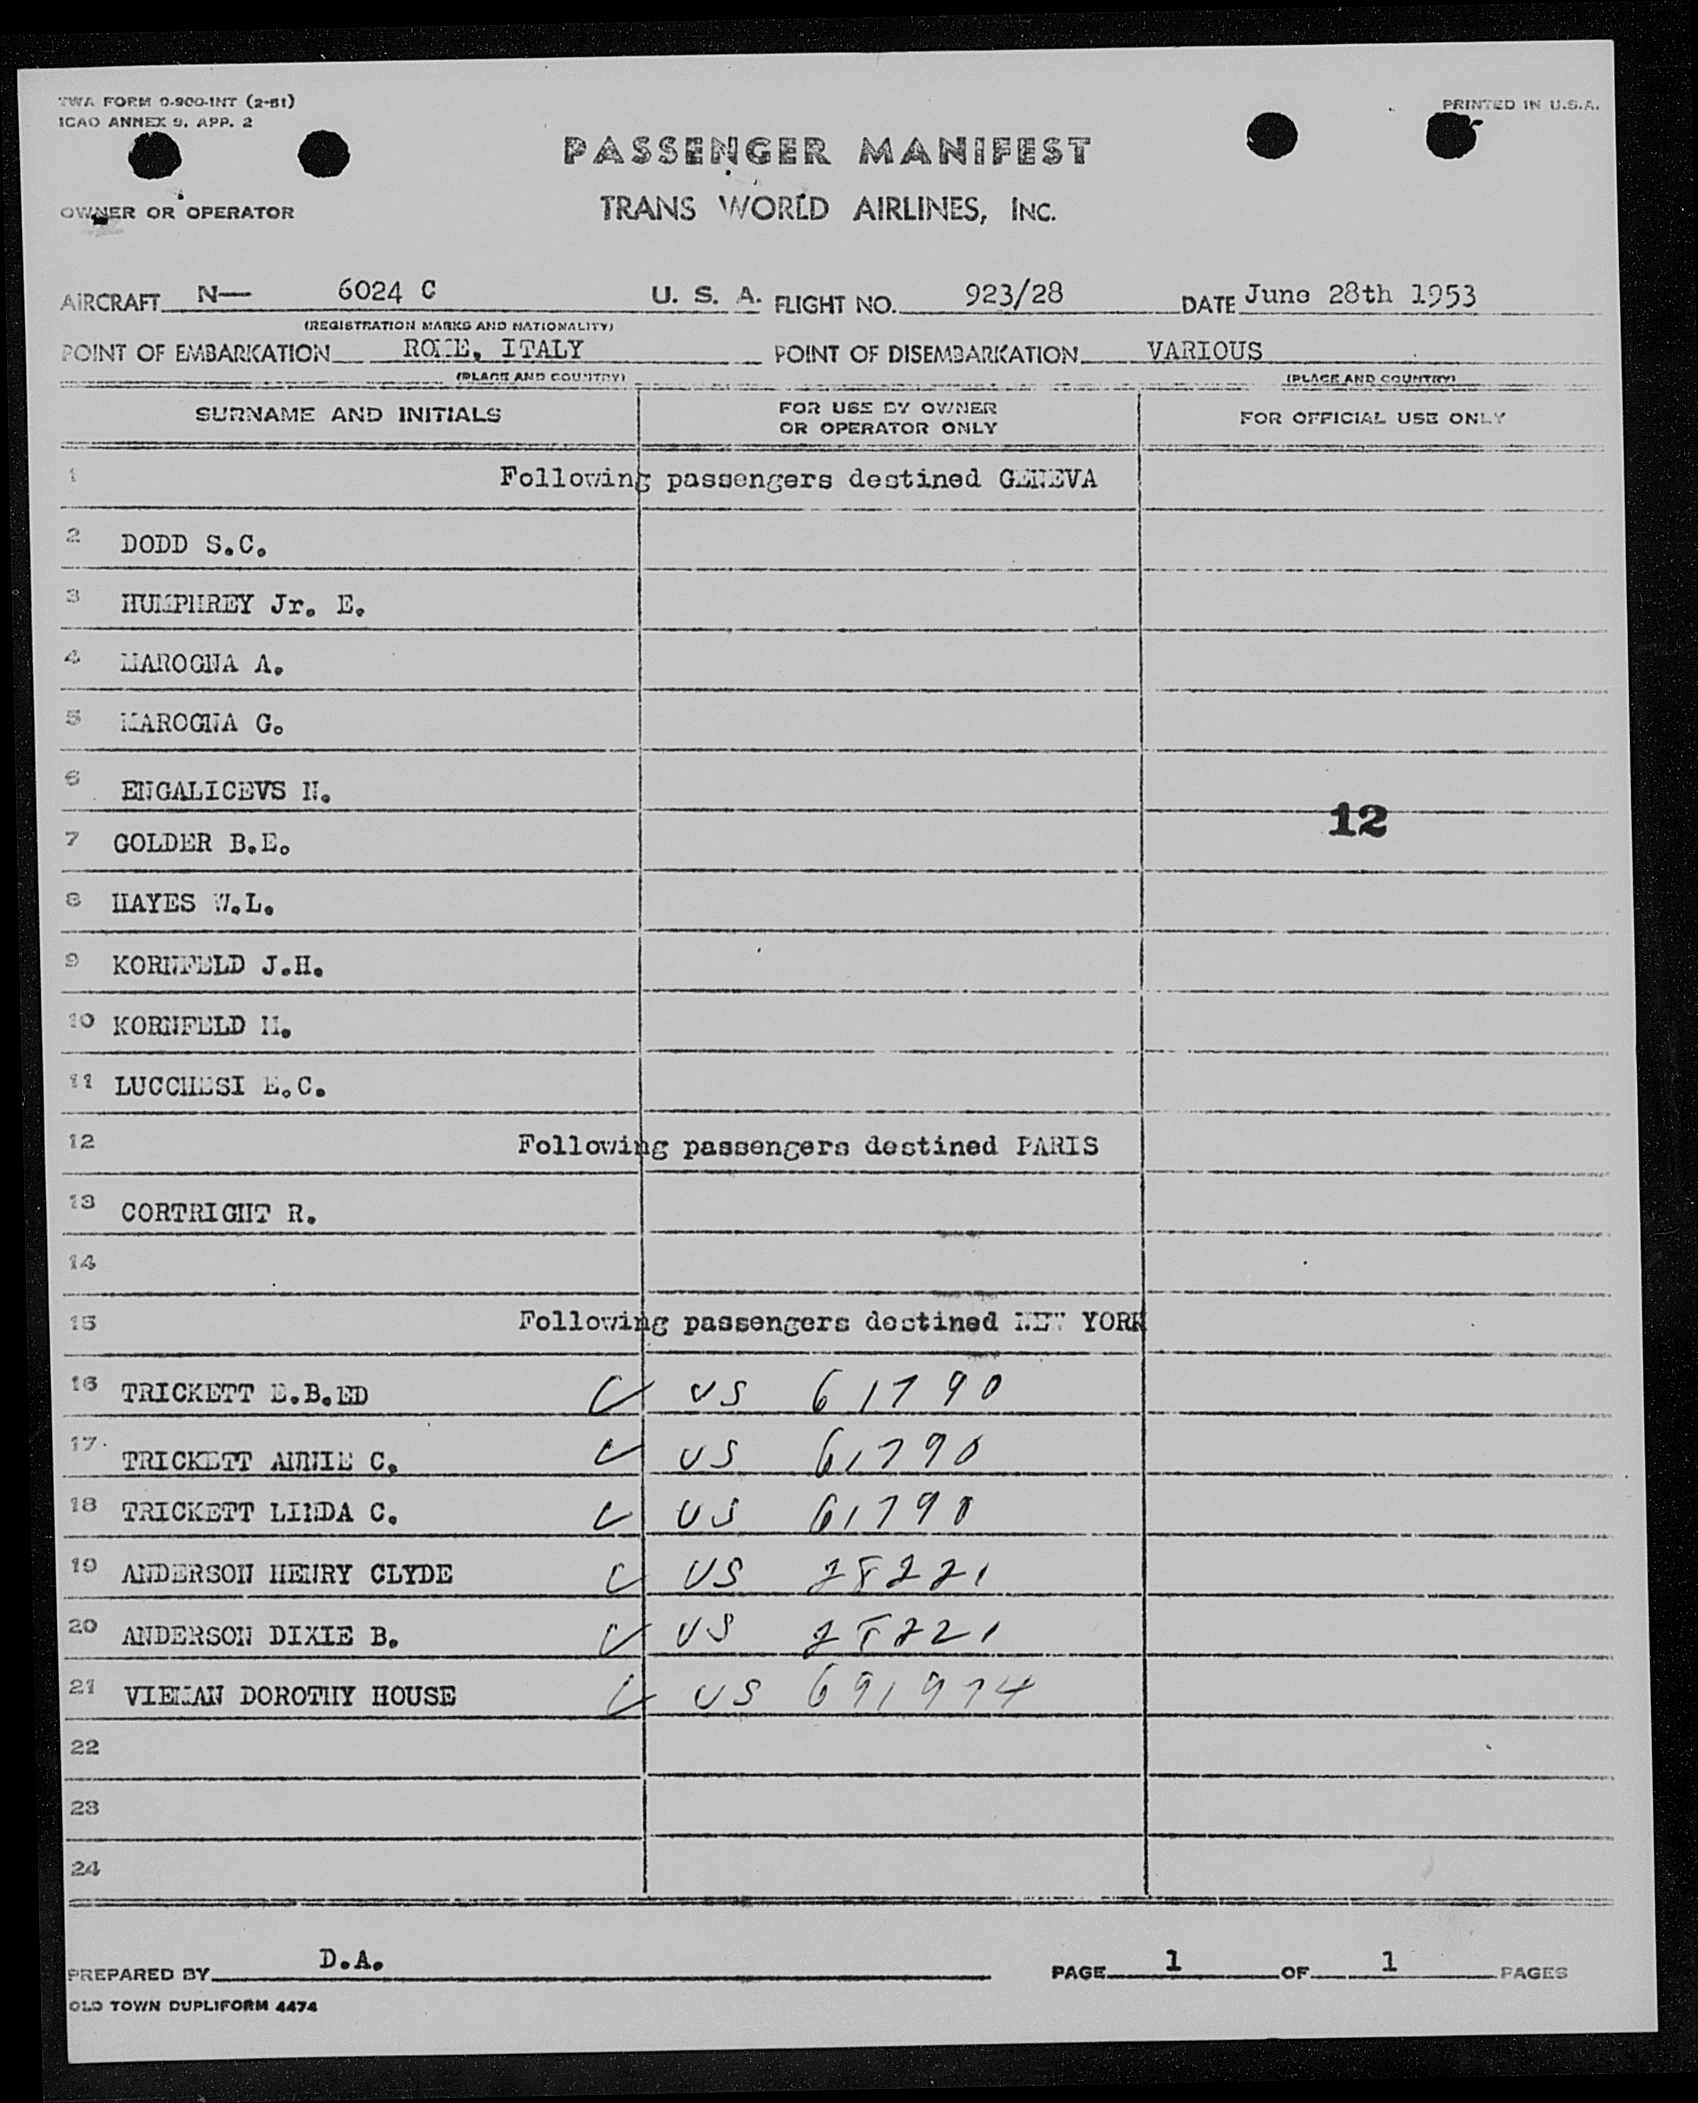 TWA FORM 0-900-INT (2-51)
ICAO ANNEX 9, APP. 2
PRINTED IN U.S.A.
PASSENGER MANIFEST
OWNER OR OPERATOR
TRANS WORLD AIRLINES, INC.
AIRCRAFT N— 6024 C U. S. A. FLIGHT NO. 923/28 DATE June 28th 1953
(REGISTRATION MARKS AND NATIONALITY)
POINT OF EMBARKATION ROME, ITALY POINT OF DISEMBARKATION VARIOUS
(PLACE AND COUNTRY) (PLACE AND COUNTRY)
SURNAME AND INITIALS FOR USE BY OWNER OR OPERATOR ONLY FOR OFFICIAL USE ONLY
1 Following passengers destined GENEVA
2 DODD S.C.
3 HUMPHREY Jr. E.
4 MAROGNA A.
5 MAROGNA G.
6 ENGALICEVS N.
12
7 GOLDER B.E.
8 HAYES W.L.
9 KORNFELD J.H.
10 KORNFELD M.
11 LUCCHESI E.C.
12 Following passengers destined PARIS
13 CORTRIGHT R.
14
15 Following passengers destined NEW YORK
16 TRICKETT E.B.ED US 61790
17 TRICKETT ANNIE C. US 61790
18 TRICKETT LINDA C. US 61790
19 ANDERSON HENRY CLYDE US 28221
20 ANDERSON DIXIE B. US 28221
21 VIEMAN DOROTHY HOUSE US 691974
22
23
24
PREPARED BY D.A. PAGE 1 OF 1 PAGES
OLD TOWN DUPLIFORM 4474